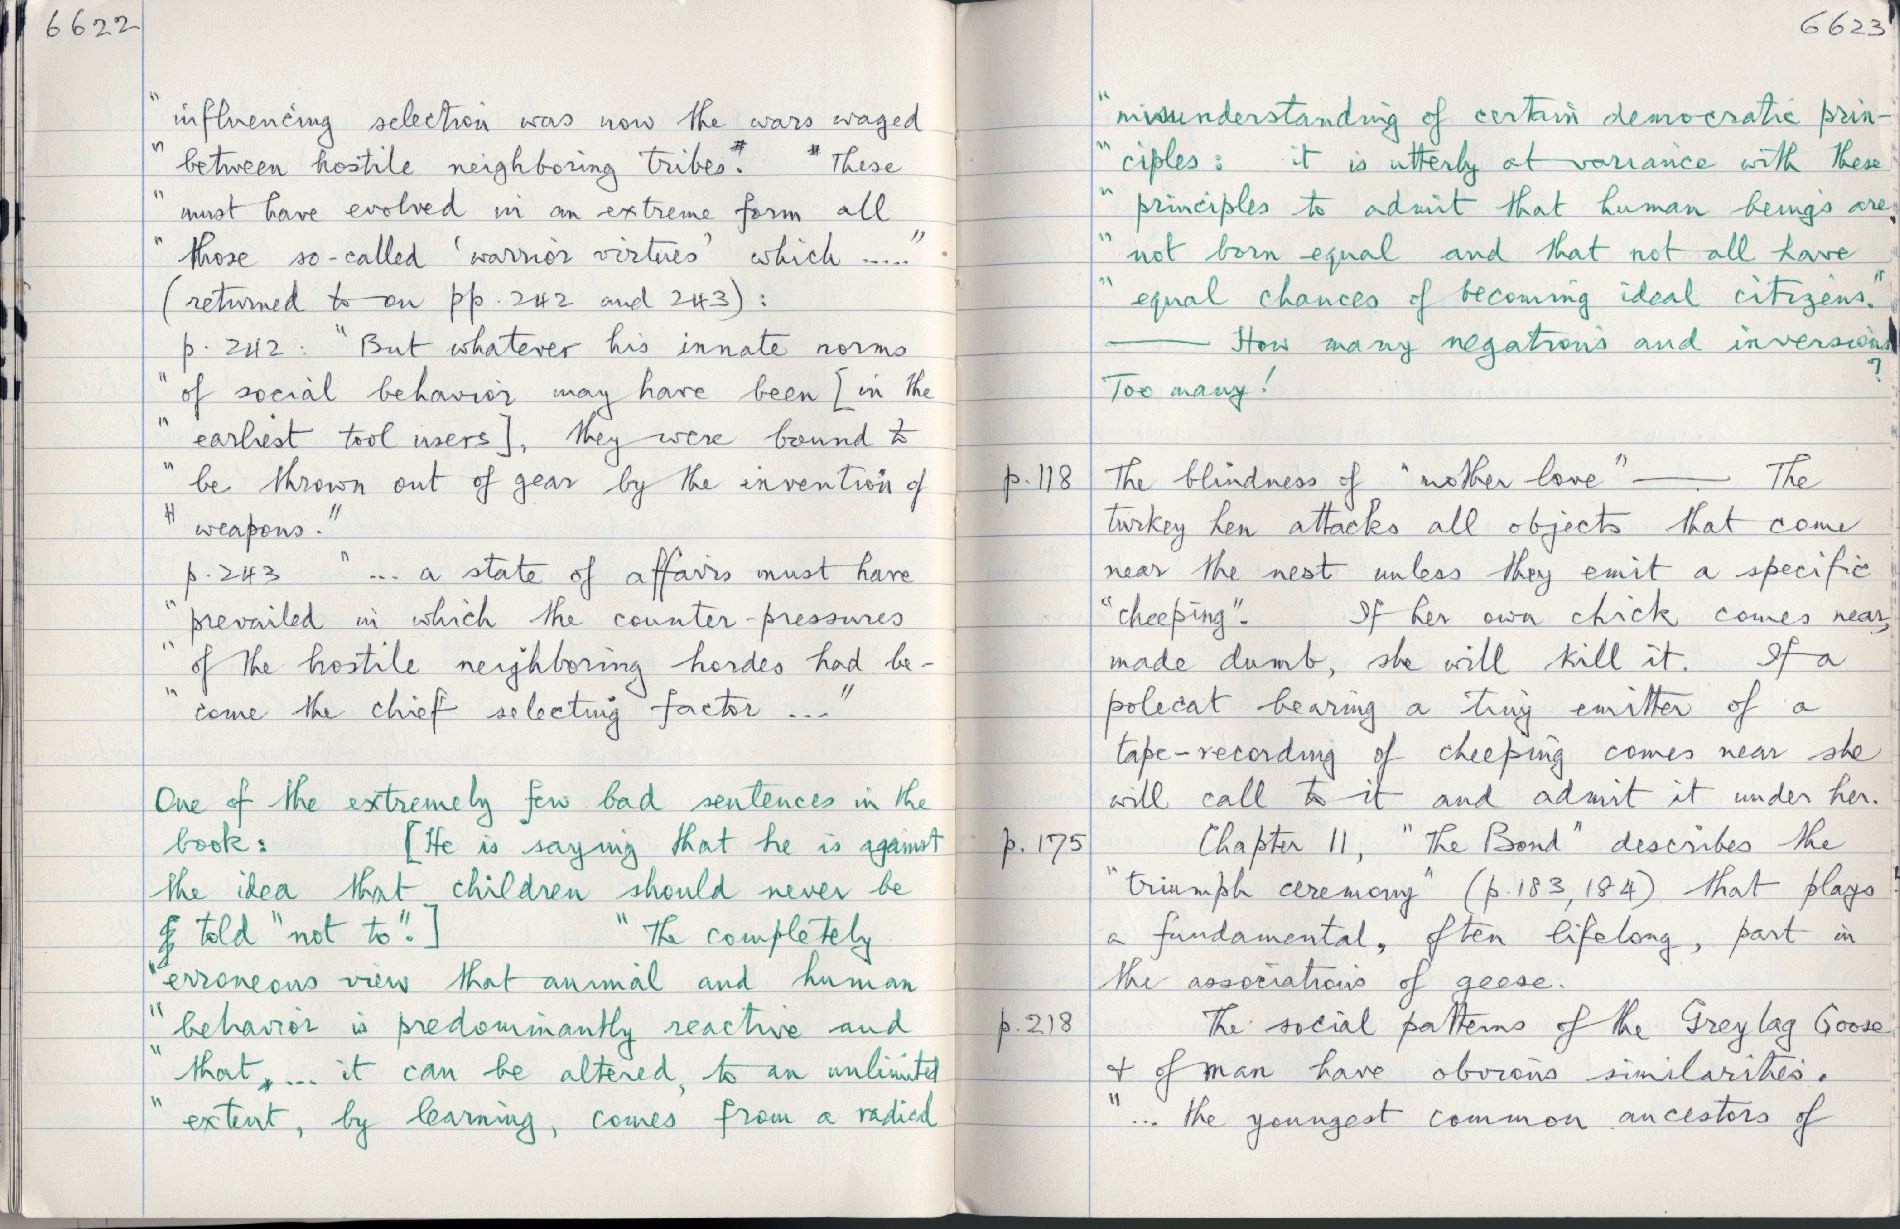 6622
" influencing selection was now the wars waged
" between hostile neighboring tribes. * * These
" must have evolved in an extreme form all
" those so-called 'warrior virtues' which ....."
(returned to on pp. 242 and 243):
p. 242: "But whatever his innate norms
" of social behavior may have been [in the
" earliest tool users], they were bound to
" be thrown out of gear by the invention of
" weapons."
p. 243 "... a state of affairs must have
" prevailed in which the counter-pressures
" of the hostile neighboring hordes had be-
" come the chief selecting factor ..."
One of the extremely few bad sentences in the
book: [He is saying that he is against
the idea that children should never be
told "not to".] "The completely
" erroneous view that animal and human
" behavior is predominantly reactive and
" that ... it can be altered, to an unlimited
" extent, by learning, comes from a radical
6623
" misunderstanding of certain democratic prin-
" ciples: it is utterly at variance with these
" principles to admit that human beings are
" not born equal and that not all have
" equal chances of becoming ideal citizens."
—— How many negations and inversions
?
Too many!
p. 118 The blindness of "mother love" —— The
turkey hen attacks all objects that come
near the nest unless they emit a specific
"cheeping". If her own chick comes near,
made dumb, she will kill it. If a
polecat bearing a tiny emitter of a
tape-recording of cheeping comes near she
will call to it and admit it under her.
p. 175 Chapter 11, "The Bond" describes the
"triumph ceremony" (p. 183, 184) that plays
a fundamental, often lifelong, part in
the associations of geese.
p. 218 The social patterns of the Greylag Goose
& of man have obvious similarities.
" ... the youngest common ancestors of